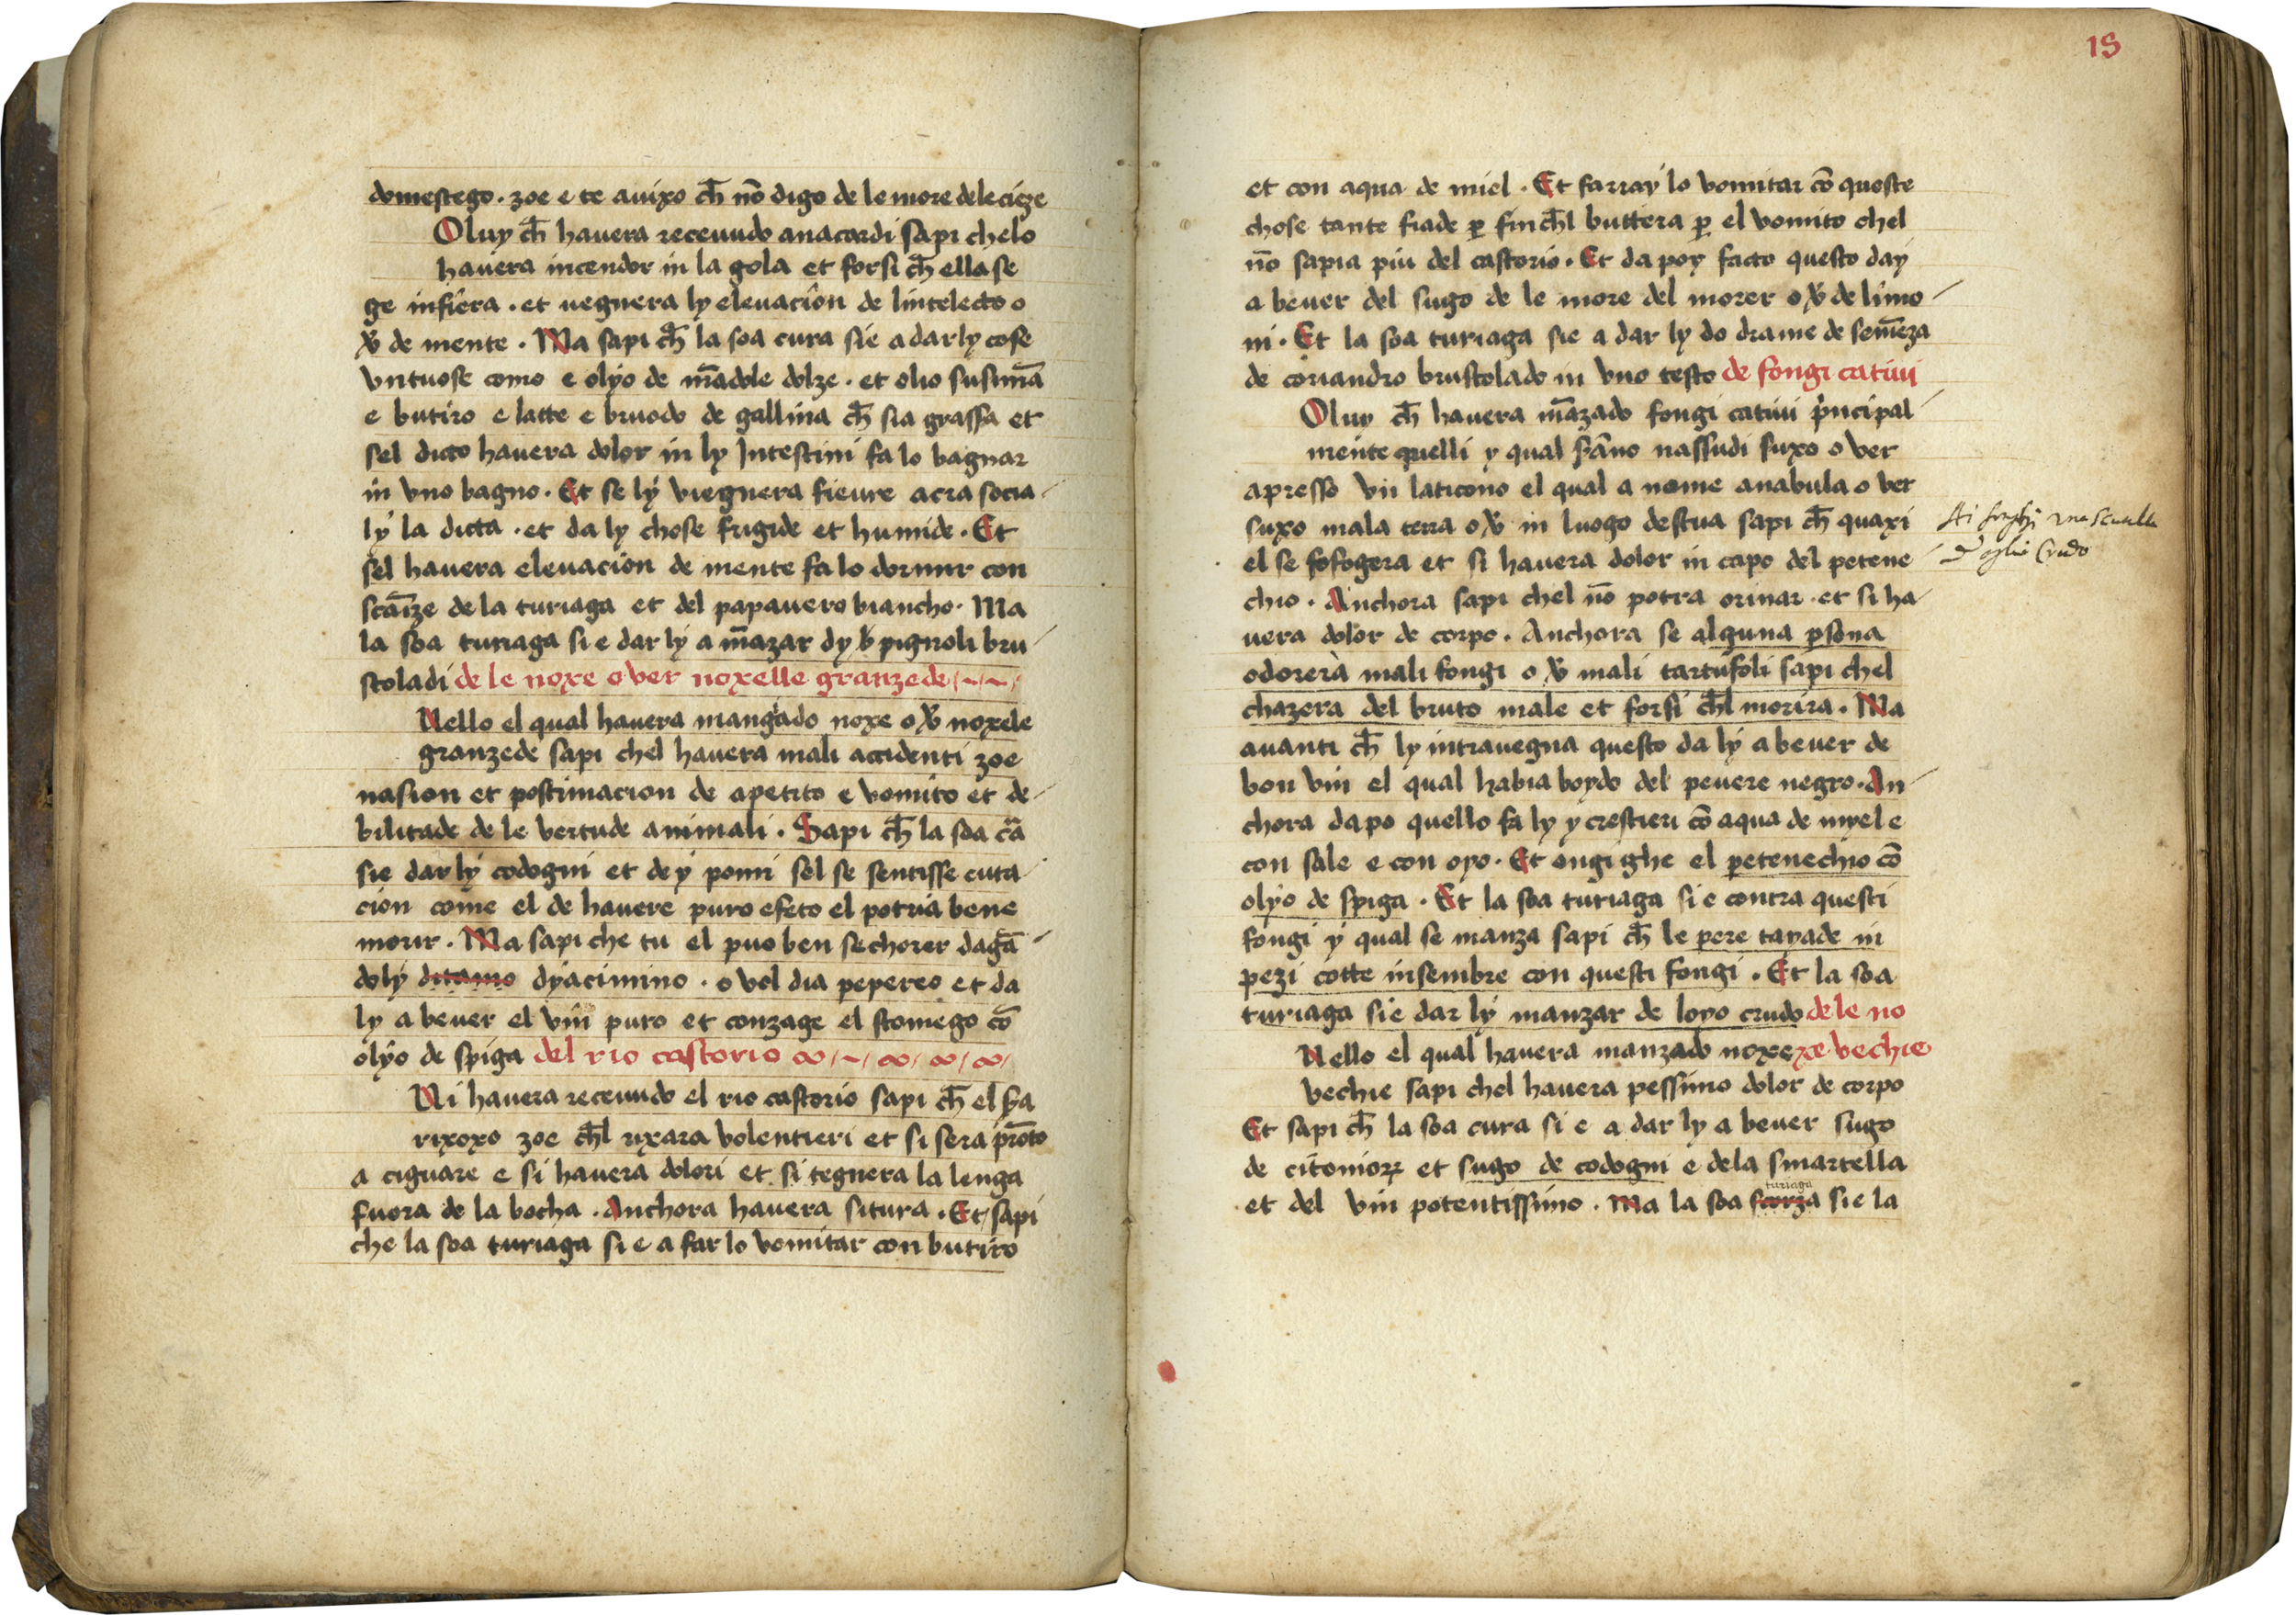 domestego . zoe e te auixo ch̄ nō digo de le more dele cieze
Oluy ch̄ hauera receuudo anacardi sapi chelo
hauera incendor in la gola et forsi ch̄ ella se
ge infiera . et uegnera ly eleuacion de lintelecto o
v̄ de mente . Ma sapi ch̄ la soa cura sie a dar ly cose
vntuose como e olyo de mādole dolze . et olio susimā
e butiro e latte e bruodo de gallina ch̄ sia grassa et
sel dicto hauera dolor in ly Intestini fa lo bagnar
in vno bagno . Et se lý viegnera fieure acra socia
lý la dicta . et da ly chose frigide et humide . Et
sel hauera eleuacion de mente fa lo dormir con
scāze de la turiaga et del papauero biancho . Ma
la soa turiaga si e dar lý a māzar dy pignoli bru
stoladi de le noxe o ver noxelle granzede
Nello el qual hauera mangado noxe o v̄ noxele
granzede sapi chel hauera mali accidenti zoe
nasion et postimacion de apetito e vomito et de
bilitade de le vertude animali . Sapi ch̄ la soa cā
sie dar lý codogni et de ý pomi sel se sentisse euta
cion come el de hauere puro efeto el potria bene
morir . Ma sapi che tu el puo ben sechorer dagā
doly ditamo dyacimino . o vel dia pepereo et da
ly a beuer el vin puro et conzage el stomego cō
olyo de spiga del rio castorio
Ni hauera receuudo el rio castorio sapi ch̄ el fa
rixoxo zoe ch̄l rixara volentieri et si sera prōto
a ciguare e si hauera dolori et si tegnera la lenga
fuora de la bocha . Anchora hauera situra . Et sapi
che la soa turiaga si e a far lo vomitar con butiro
18
et con aqua de miel . Et farray lo vomitar cō queste
chose tante fiade p fin ch̄l buttera p el vomito chel
nō sapia piu del castorio . Et da poy facto questo day
a beuer del sugo de le more del morer o v̄ de limo
ni . Et la soa turiaga sie a dar ly do drame de semēza
de coriandro brustolado in vno testo de fongi catiui
Oluy ch̄ hauera māzado fongi catiui pncipal
mente quelli y qual sāno nassudi suxo o ver
apresso vn laticono el qual a nome anabula o ver
suxo mala terra o v̄ in luogo destua sapi ch̄ quaxi
el se sofogera et si hauera dolor in capo del petene
chio . Anchora sapi chel nō potra orinar . et si ha
uera dolor de corpo . Anchora se alguna psona
odorera mali fongi o v̄ mali tartufoli sapi chel
chazera del bruto male et forsi ch̄l morira . Ma
auanti ch̄ ly intrauegna questo da lý a beuer de
bon vin el qual habia boydo del peuere negro . An
chora dapo quello fa ly y crestieri cō aqua de myel e
con sale e con oyo . Et ongi ghe el petenechio cō
olyo de spiga . Et la soa turiaga si e contra questi
fongi ý qual se manza sapi ch̄ le pere tayade in
pezi cotte insembre con questi fongi . Et la soa
turiaga sie dar lý manzar de loyo crudo de le no
Nello el qual hauera manzado noxe xe vechie
vechie sapi chel hauera pessimo dolor de corpo
Et sapi ch̄ la soa cura si e a dar ly a beuer sugo
de citonioꝝ et sugo de codogni e dela smartella
turiaga
et del vin potentissimo . Ma la soa scorza sie la